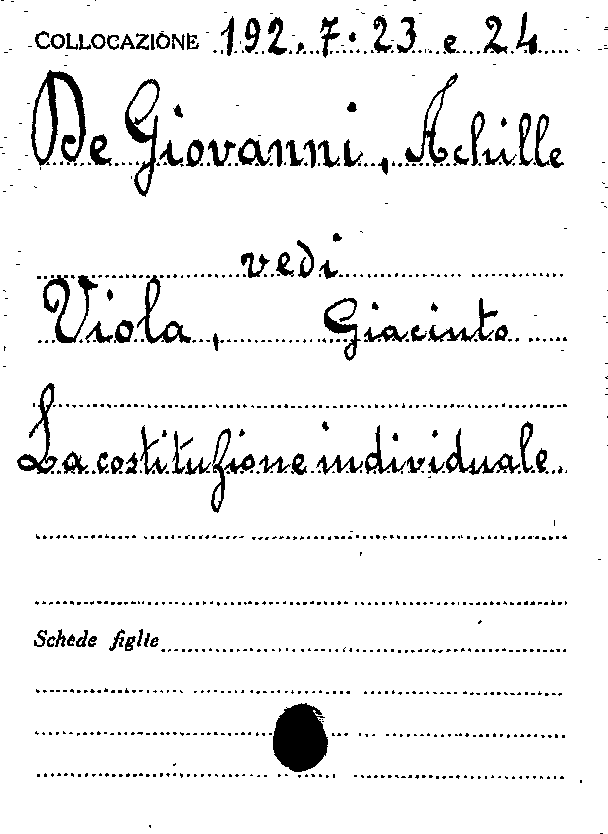 COLLOCAZIONE 192.7.23 e 24
De Giovanni, Achille
vedi
Viola, Giacinto
La costituzione individuale.
Schede figlie